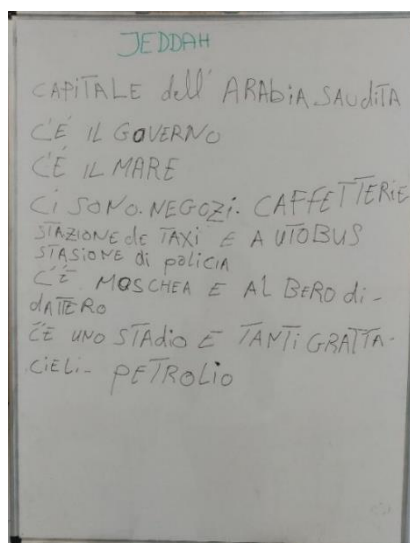 JEDDAH
CAPITALE dell' ARAbiA SAUdiTA
C'É IL GOVERNO
C'É IL MARE
Ci SONO. NEGOZi. CAFFETTERiE
STAZIONE de TAXi E AUTOBUS
STASIONE di policia
C'È MOSCHEA E ALBERO di-
dATTERO
C'È UNO STAdio E TANTi GRATTA-
CiELi- PETROLiO